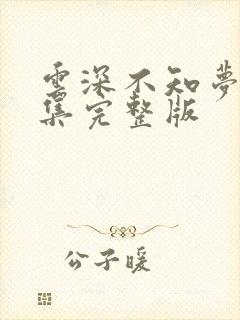 雲深不知夢
集完整版
公子暖